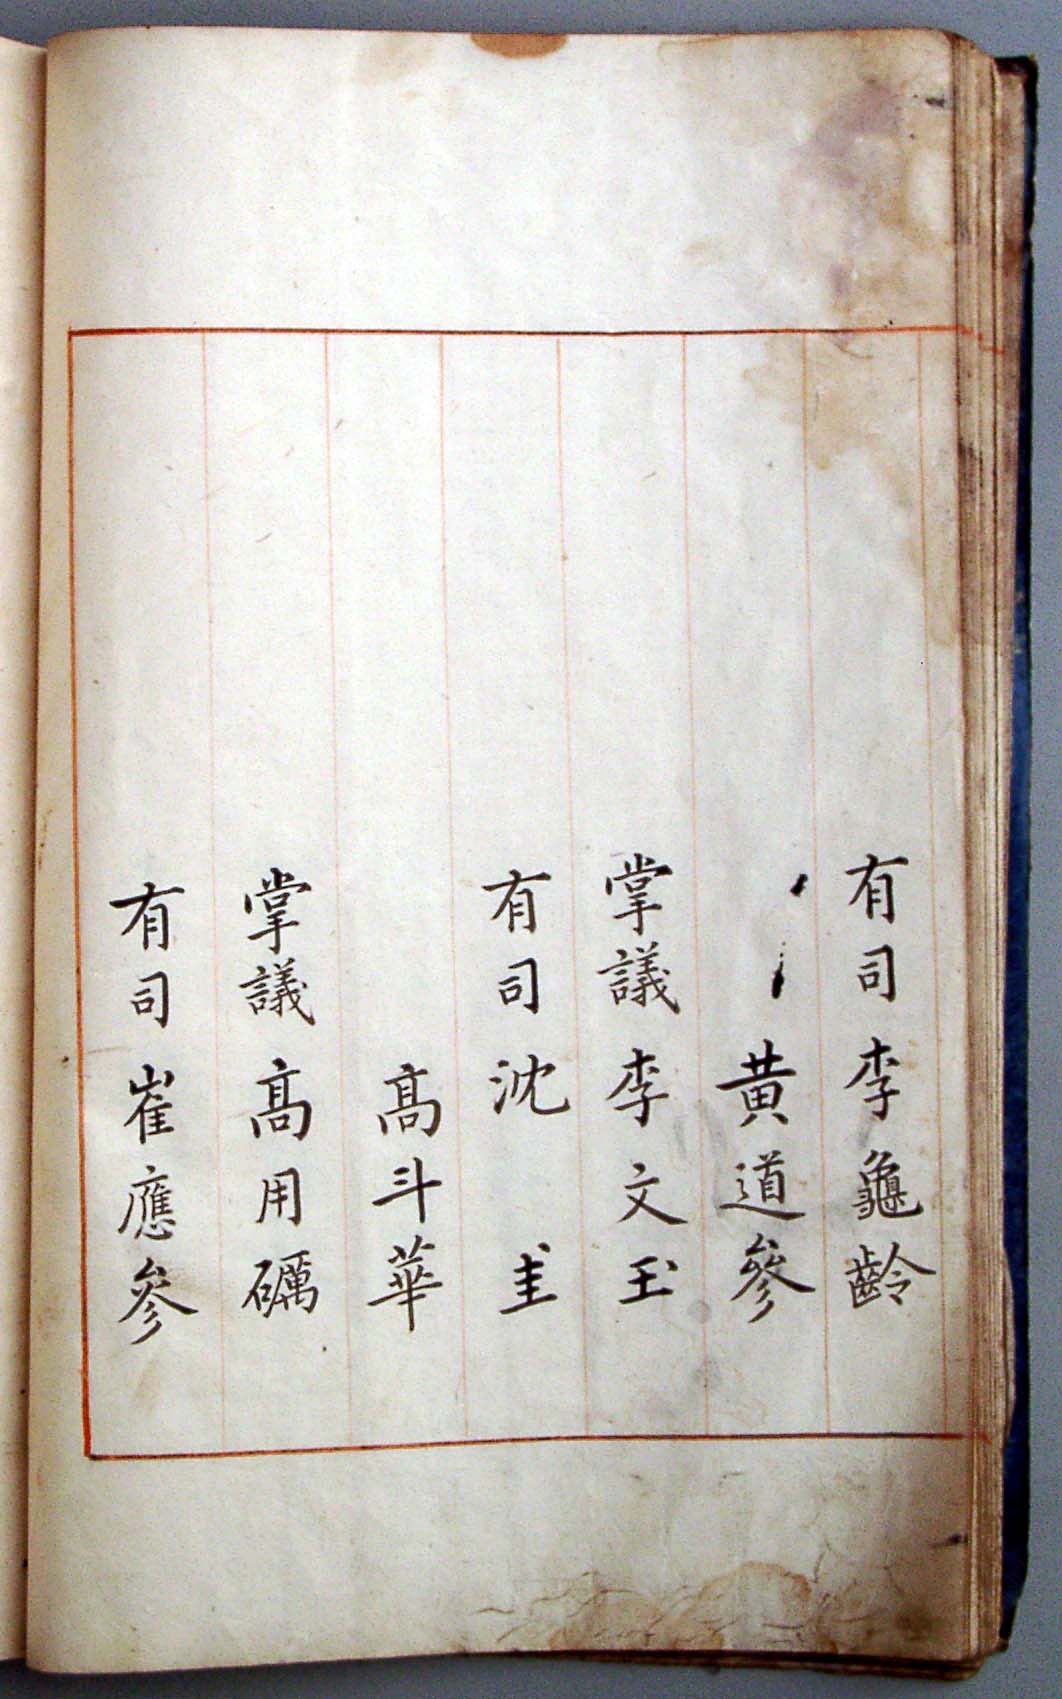 有司李龜齡
黄道參
掌議李文玉
有司沈圭
高斗華
掌議高用礪
有司崔應參